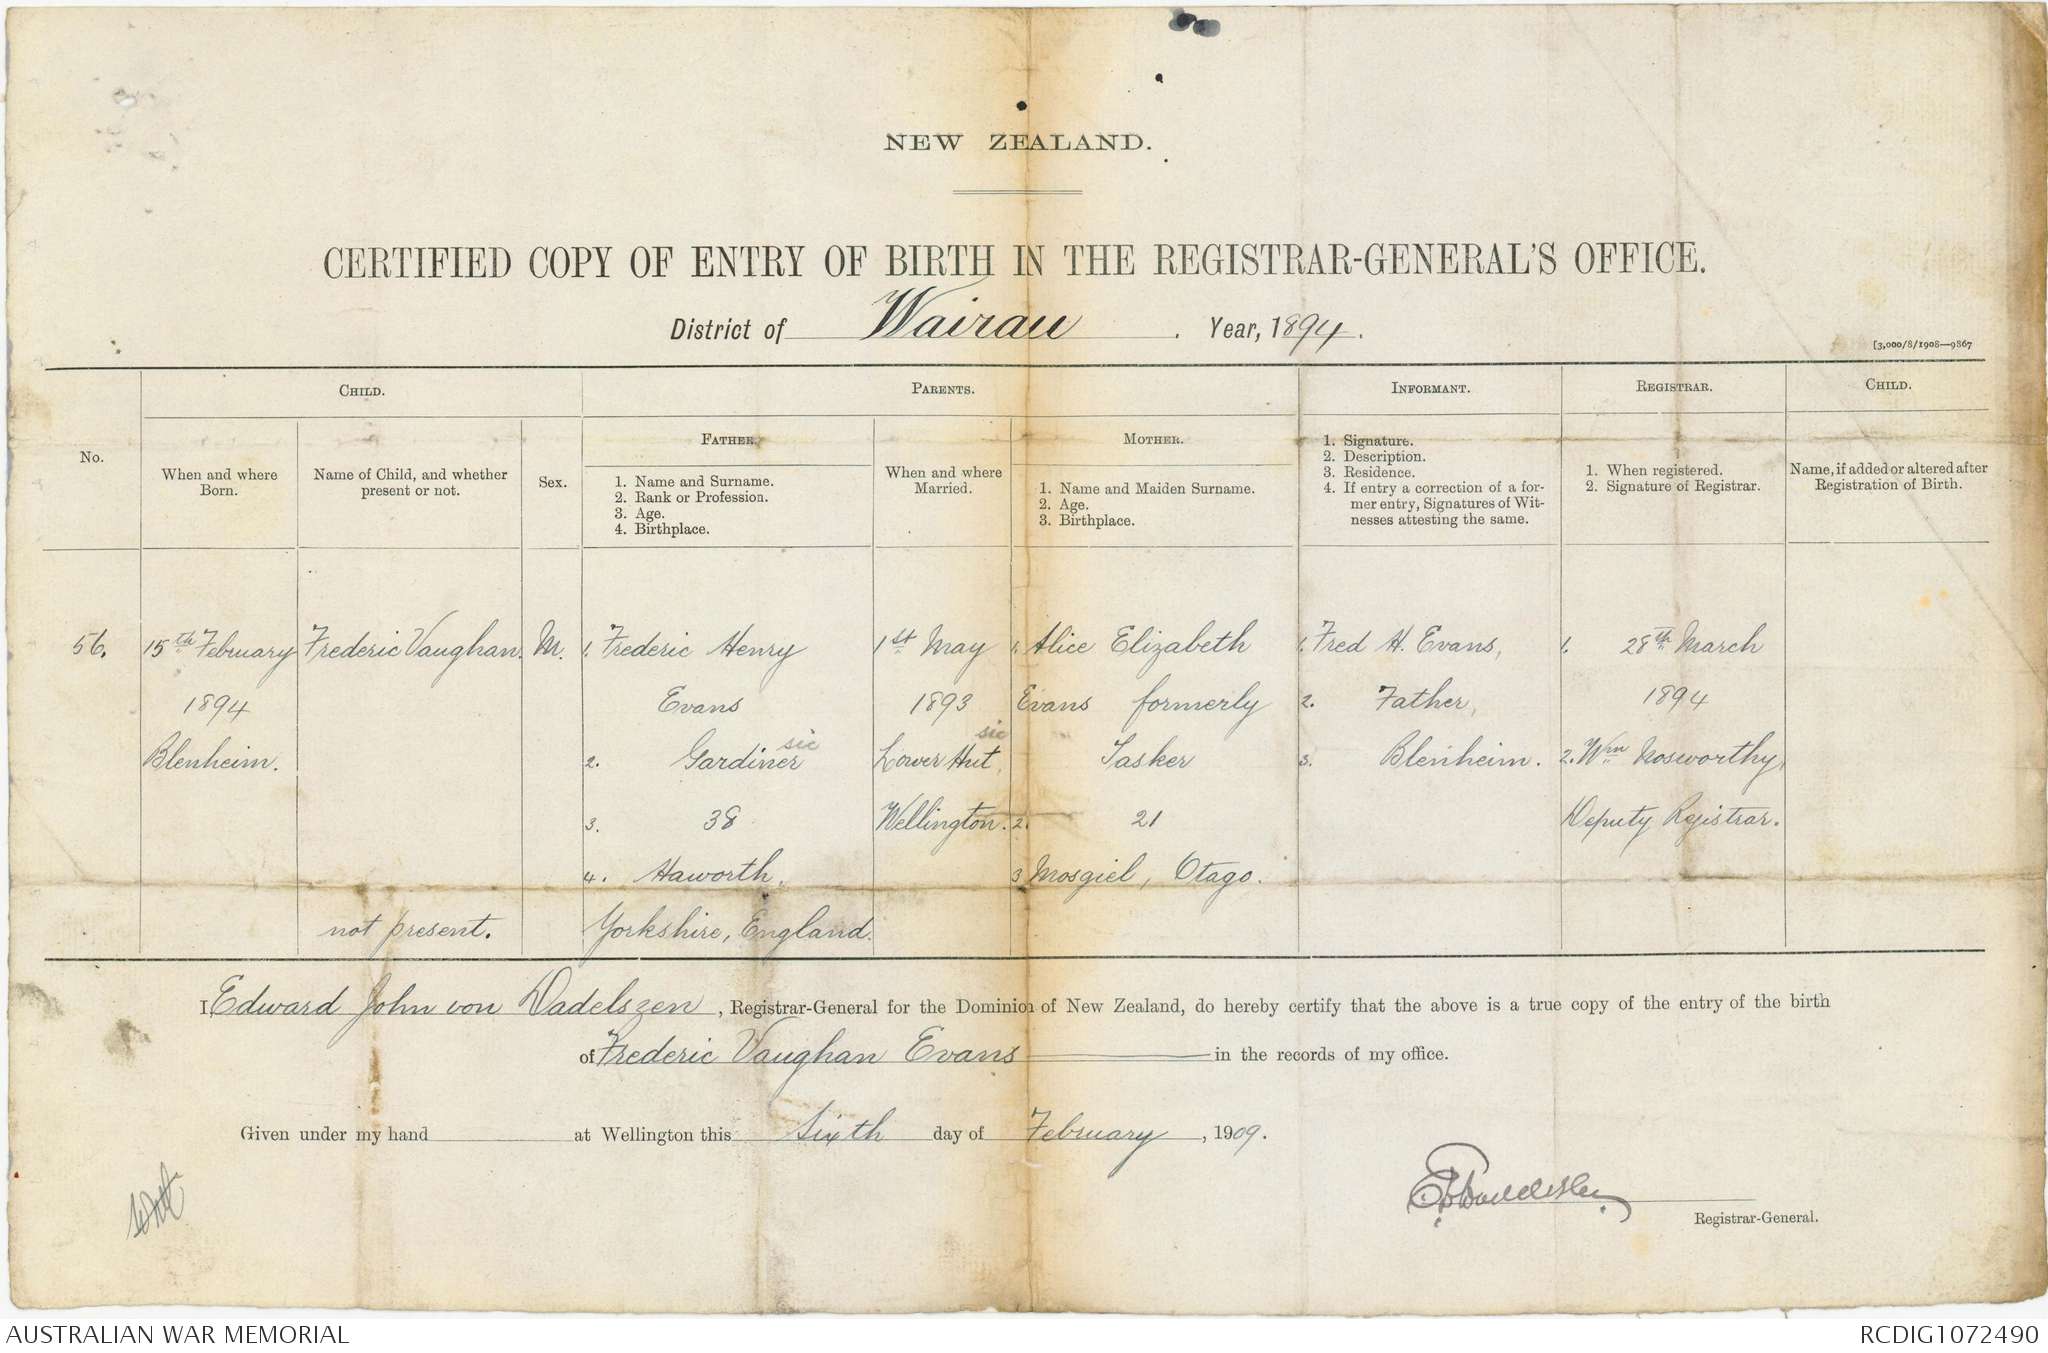 NEW ZEALAND.
CERTIFIED COPY OF ENTRY OF BIRTH IN THE REGISTRAR-GENERAL'S OFFICE.
District of Wairau. Year, 1894.
[3,000/8/1908—9867
CHILD. PARENTS. INFORMANT. REGISTRAR. CHILD.
No.
When and where
Born.
Name of Child, and whether
present or not.
Sex.
FATHER.
1. Name and Surname.
2. Rank or Profession.
3. Age.
4. Birthplace.
When and where
Married.
MOTHER.
1. Name and Maiden Surname.
2. Age.
3. Birthplace.
1. Signature.
2. Description.
3. Residence.
4. If entry a correction of a for-
mer entry, Signatures of Wit-
nesses attesting the same.
1. When registered.
2. Signature of Registrar.
Name, if added or altered after
Registration of Birth.
56.
15th February
1894
Blenheim.
Frederic Vaughan.
not present.
M.
1. Frederic Henry
Evans
sic
2. Gardiner
3. 38
4. Haworth,
Yorkshire, England.
1st May
1893
sic
Lower Hut,
Wellington.
1. Alice Elizabeth
Evans formerly
Tasker
2. 21
3 Mosgiel, Otago.
1. Fred H. Evans,
2. Father,
3. Blenheim.
1. 28th March
1894
2. Wm Nosworthy,
Deputy Registrar.
I Edward John von Dadelszen, Registrar-General for the Dominion of New Zealand, do hereby certify that the above is a true copy of the entry of the birth
of Frederic Vaughan Evans in the records of my office.
Given under my hand at Wellington this Sixth day of February, 1909.
Registrar-General.
AUSTRALIAN WAR MEMORIAL
RCDIG1072490